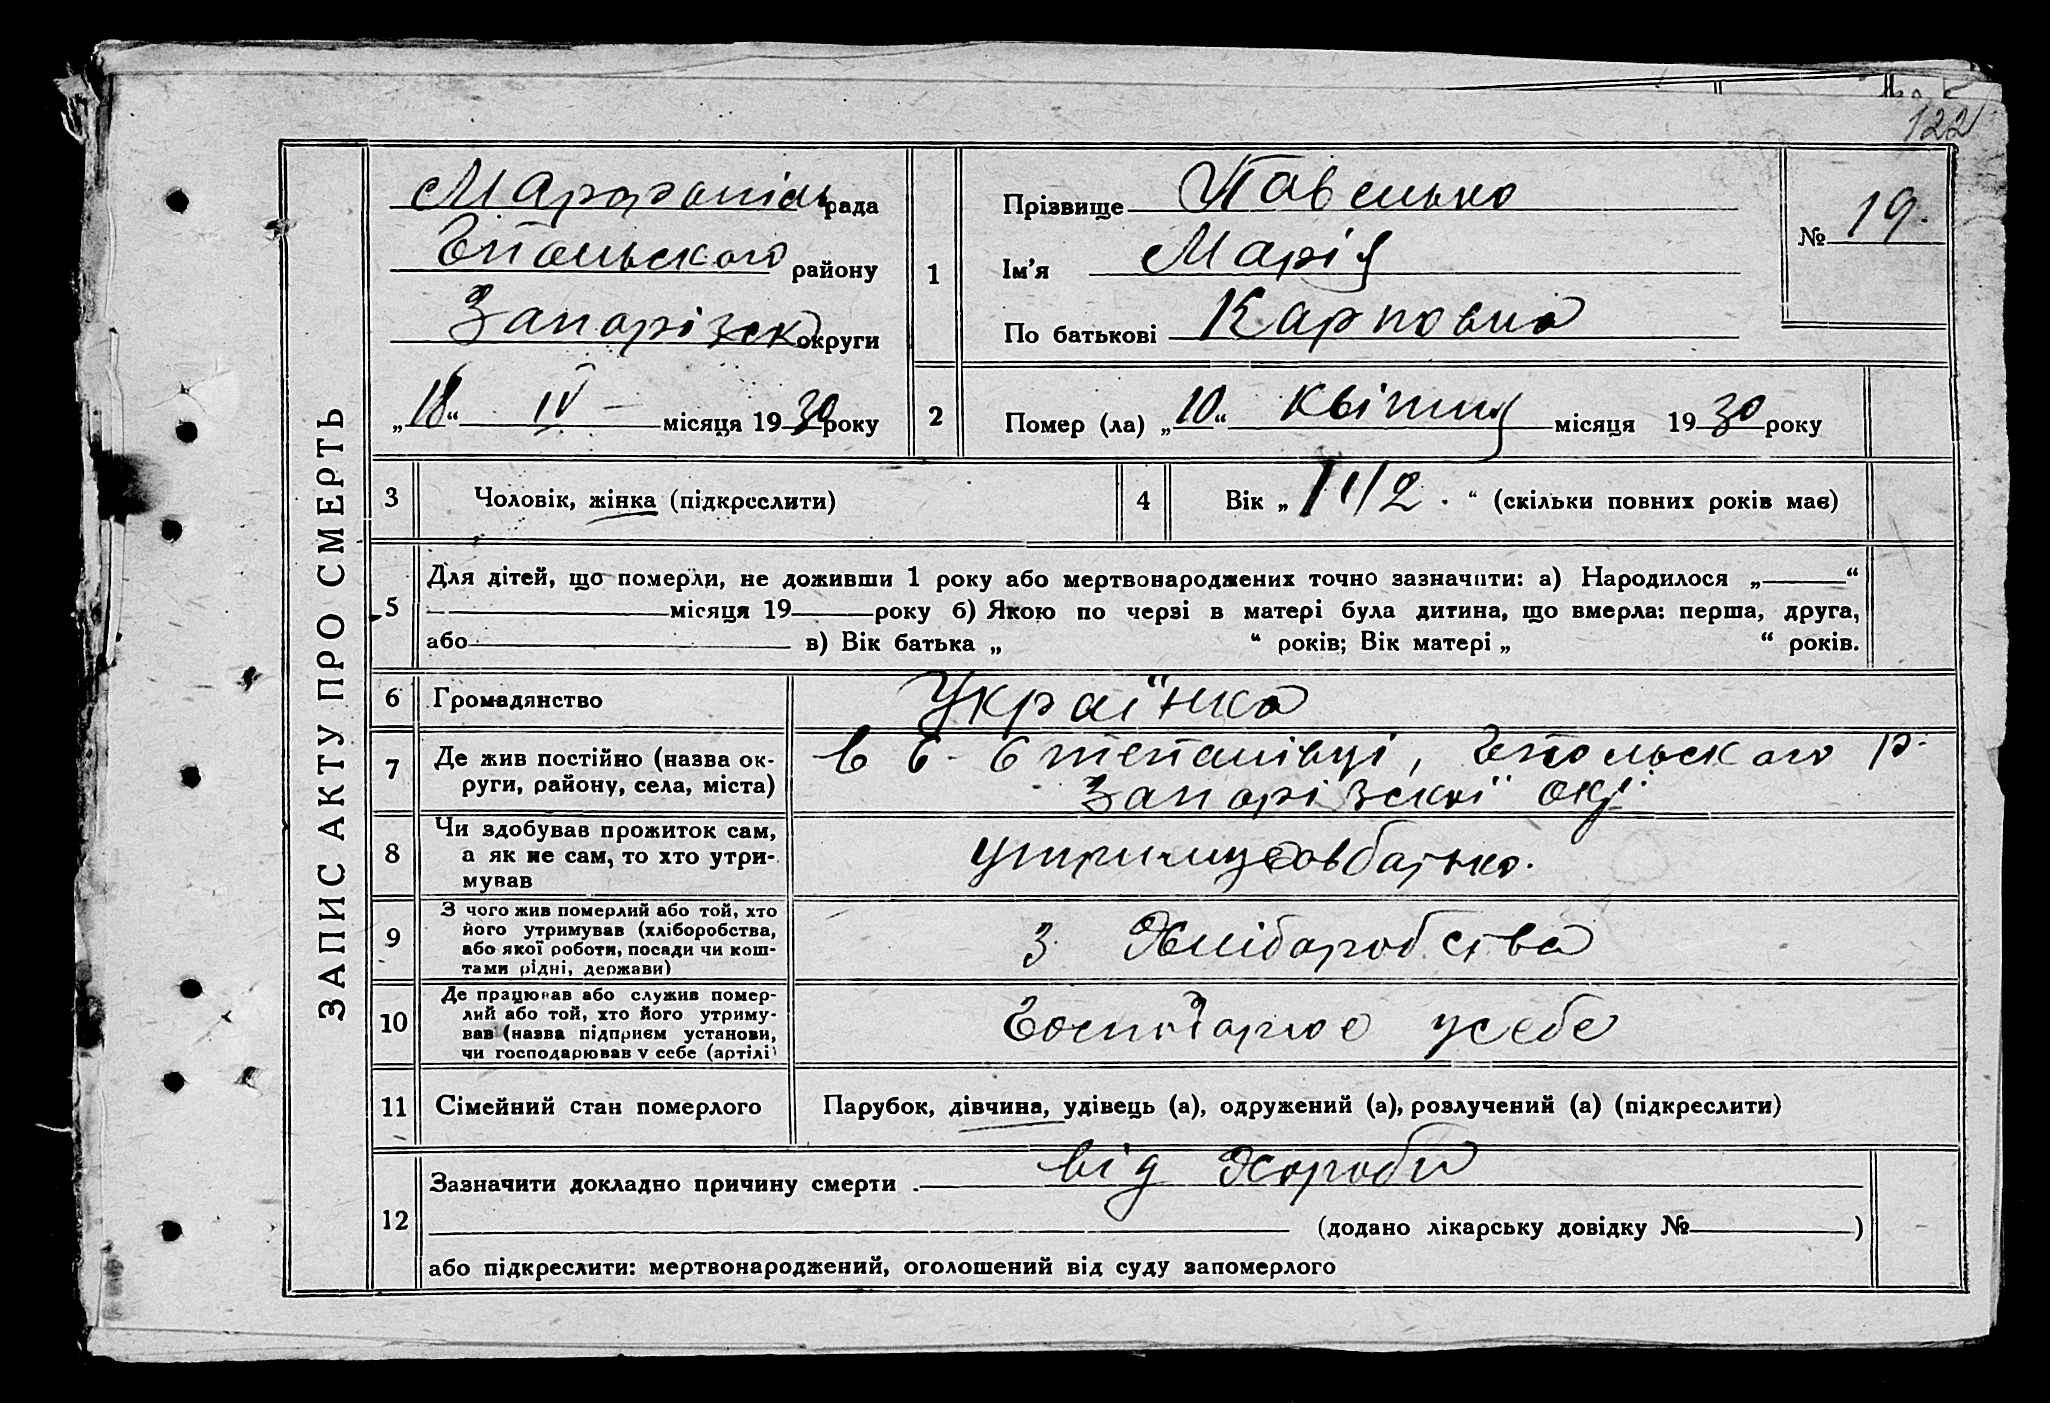 122
ЗАПИС АКТУ ПРО СМЕРТЬ
рада
району
Запорізск округи
„18“ IV місяця 1930 року
1
Прізвище Павелько
Ім'я Марія
По батькові Карповна
№ 19.
2
Помер (ла) „10“ квітня місяця 1930 року
3
Чоловік, жінка (підкреслити)
4
Вік „1 1/2.“ (скільки повних років має)
5
Для дітей, що померли, не доживши 1 року або мертвонароджених точно зазначити: а) Народилося „ “
місяця 19 року б) Якою по черзі в матері була дитина, що вмерла: перша, друга,
або в) Вік батька „ “ років; Вік матері „ “ років.
6
Громадянство
Українка
7
Де жив постійно (назва ок-
руги, району, села, міста)
в с. Степанівці, р.
Запорізскої окр.
8
Чи здобував прожиток сам,
а як не сам, то хто утри-
мував
утримував батько.
9
З чого жив померлий або той, хто
його утримував (хліборобства,
або якої роботи, посади чи кош-
тами рідні, держави)
з Хліборобства
10
Де працював або служив помер-
лий або той, хто його утриму-
вав (назва підприєм установи,
чи господарював у себе (артілі)
Господарює усебе
11
Сімейний стан померлого
Парубок, дівчина, удівець (а), одружений (а), розлучений (а) (підкреслити)
12
Зазначити докладно причину смерти від Хороби
(додано лікарську довідку № )
або підкреслити: мертвонароджений, оголошений від суду запомерлого